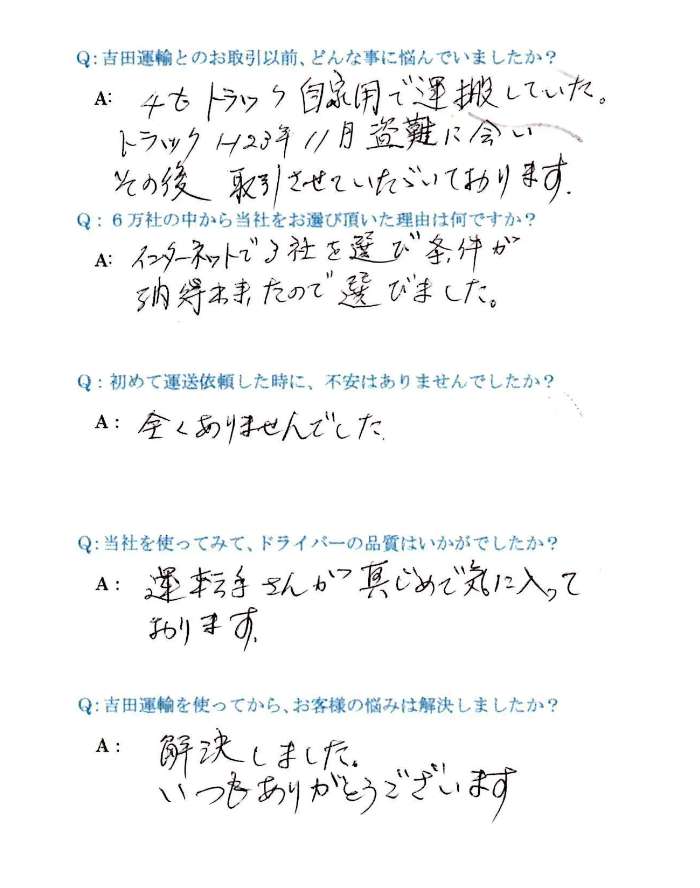 Q:吉田運輸とのお取引以前、どんな事に悩んでいましたか?
A: 4t トラック 自家用で運搬していた。
トラック H23年 11月 盗難に会い
その後 取引させていただいております.
Q:6万社の中から当社をお選び頂いた理由は何ですか?
A: インターネットで3社を選び条件が
納得出来たので選びました。
Q:初めて運送依頼した時に、不安はありませんでしたか?
A: 全くありませんでした.
Q:当社を使ってみて、ドライバーの品質はいかがでしたか?
A: 運転手さんが真じめで気に入って
おります.
Q:吉田運輸を使ってから、お客様の悩みは解決しましたか?
A: 解決しました。
いつもありがとうございます